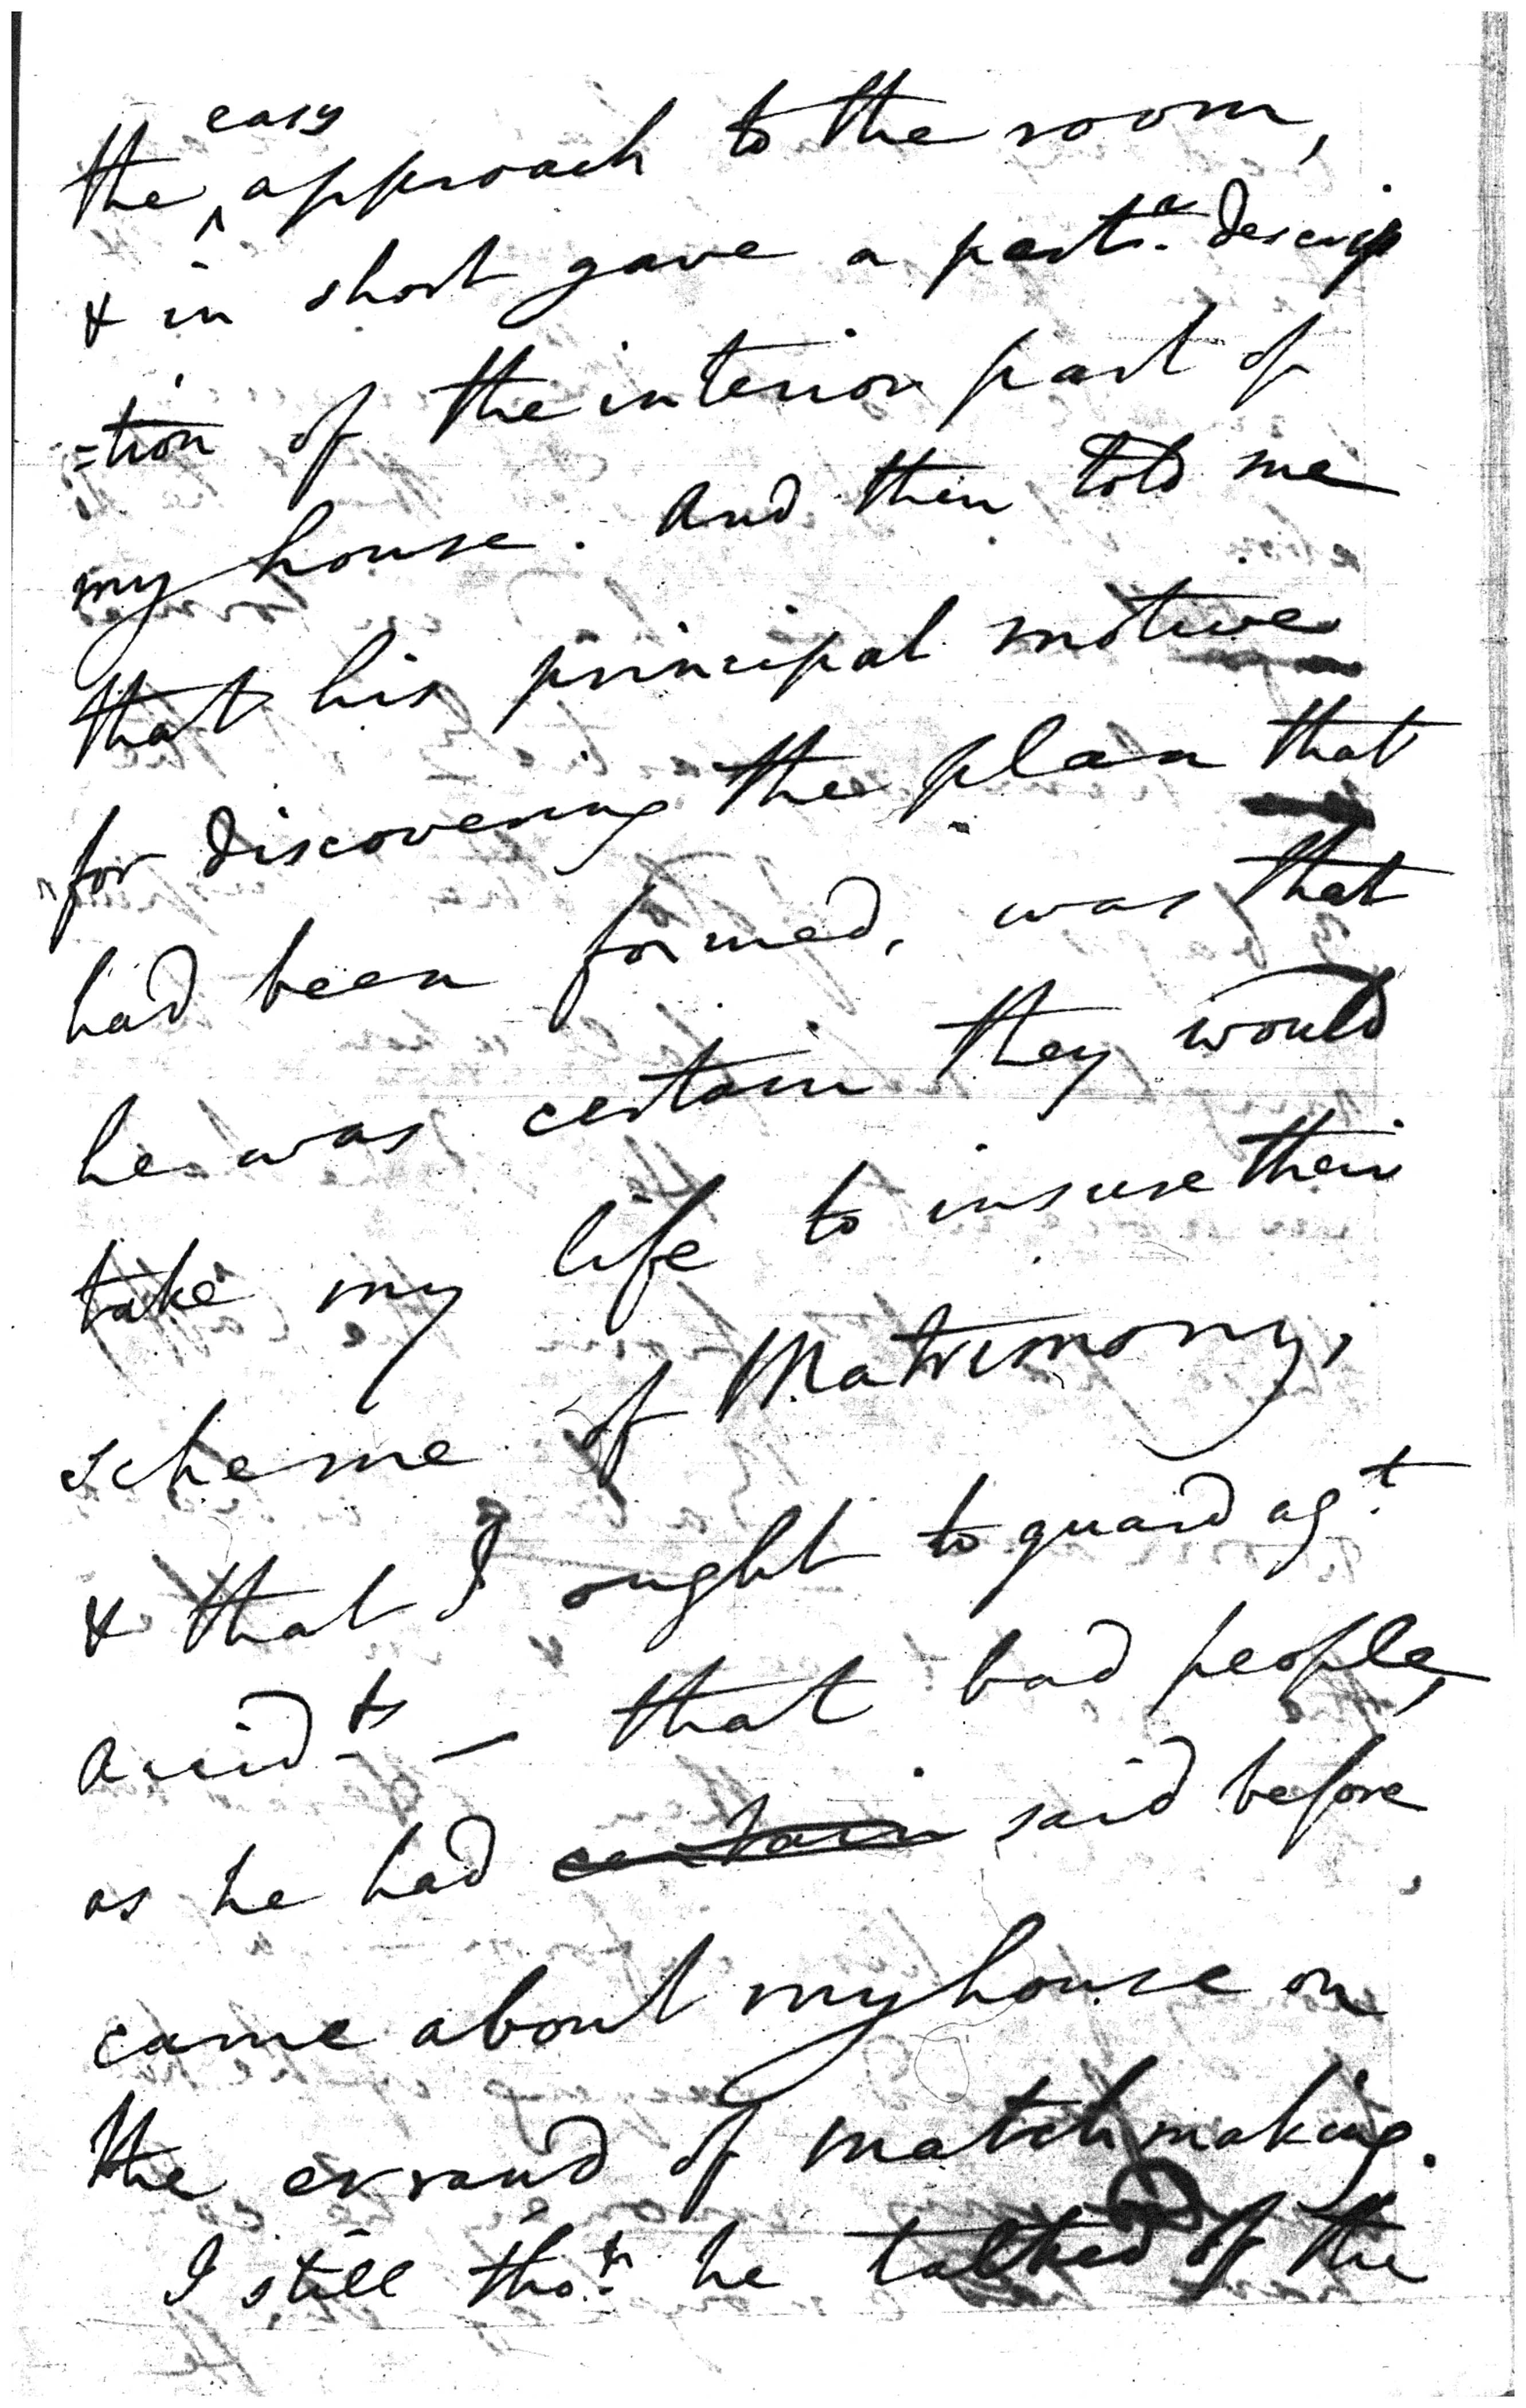 the ^easy approach to the room,
& in short gave a part.r descrip
=tion of the interior part of
my house. And then told me
that his principal motive
for discovering the plan that
had been formed, was that
he was certain they would
take my life to insure their
scheme of Matrimony,
& that I ought to guard ag.t
accid.ts — that bad people,
as he had certain said before
came about my house on
the errand of match making.
I still tho.t he talked of the